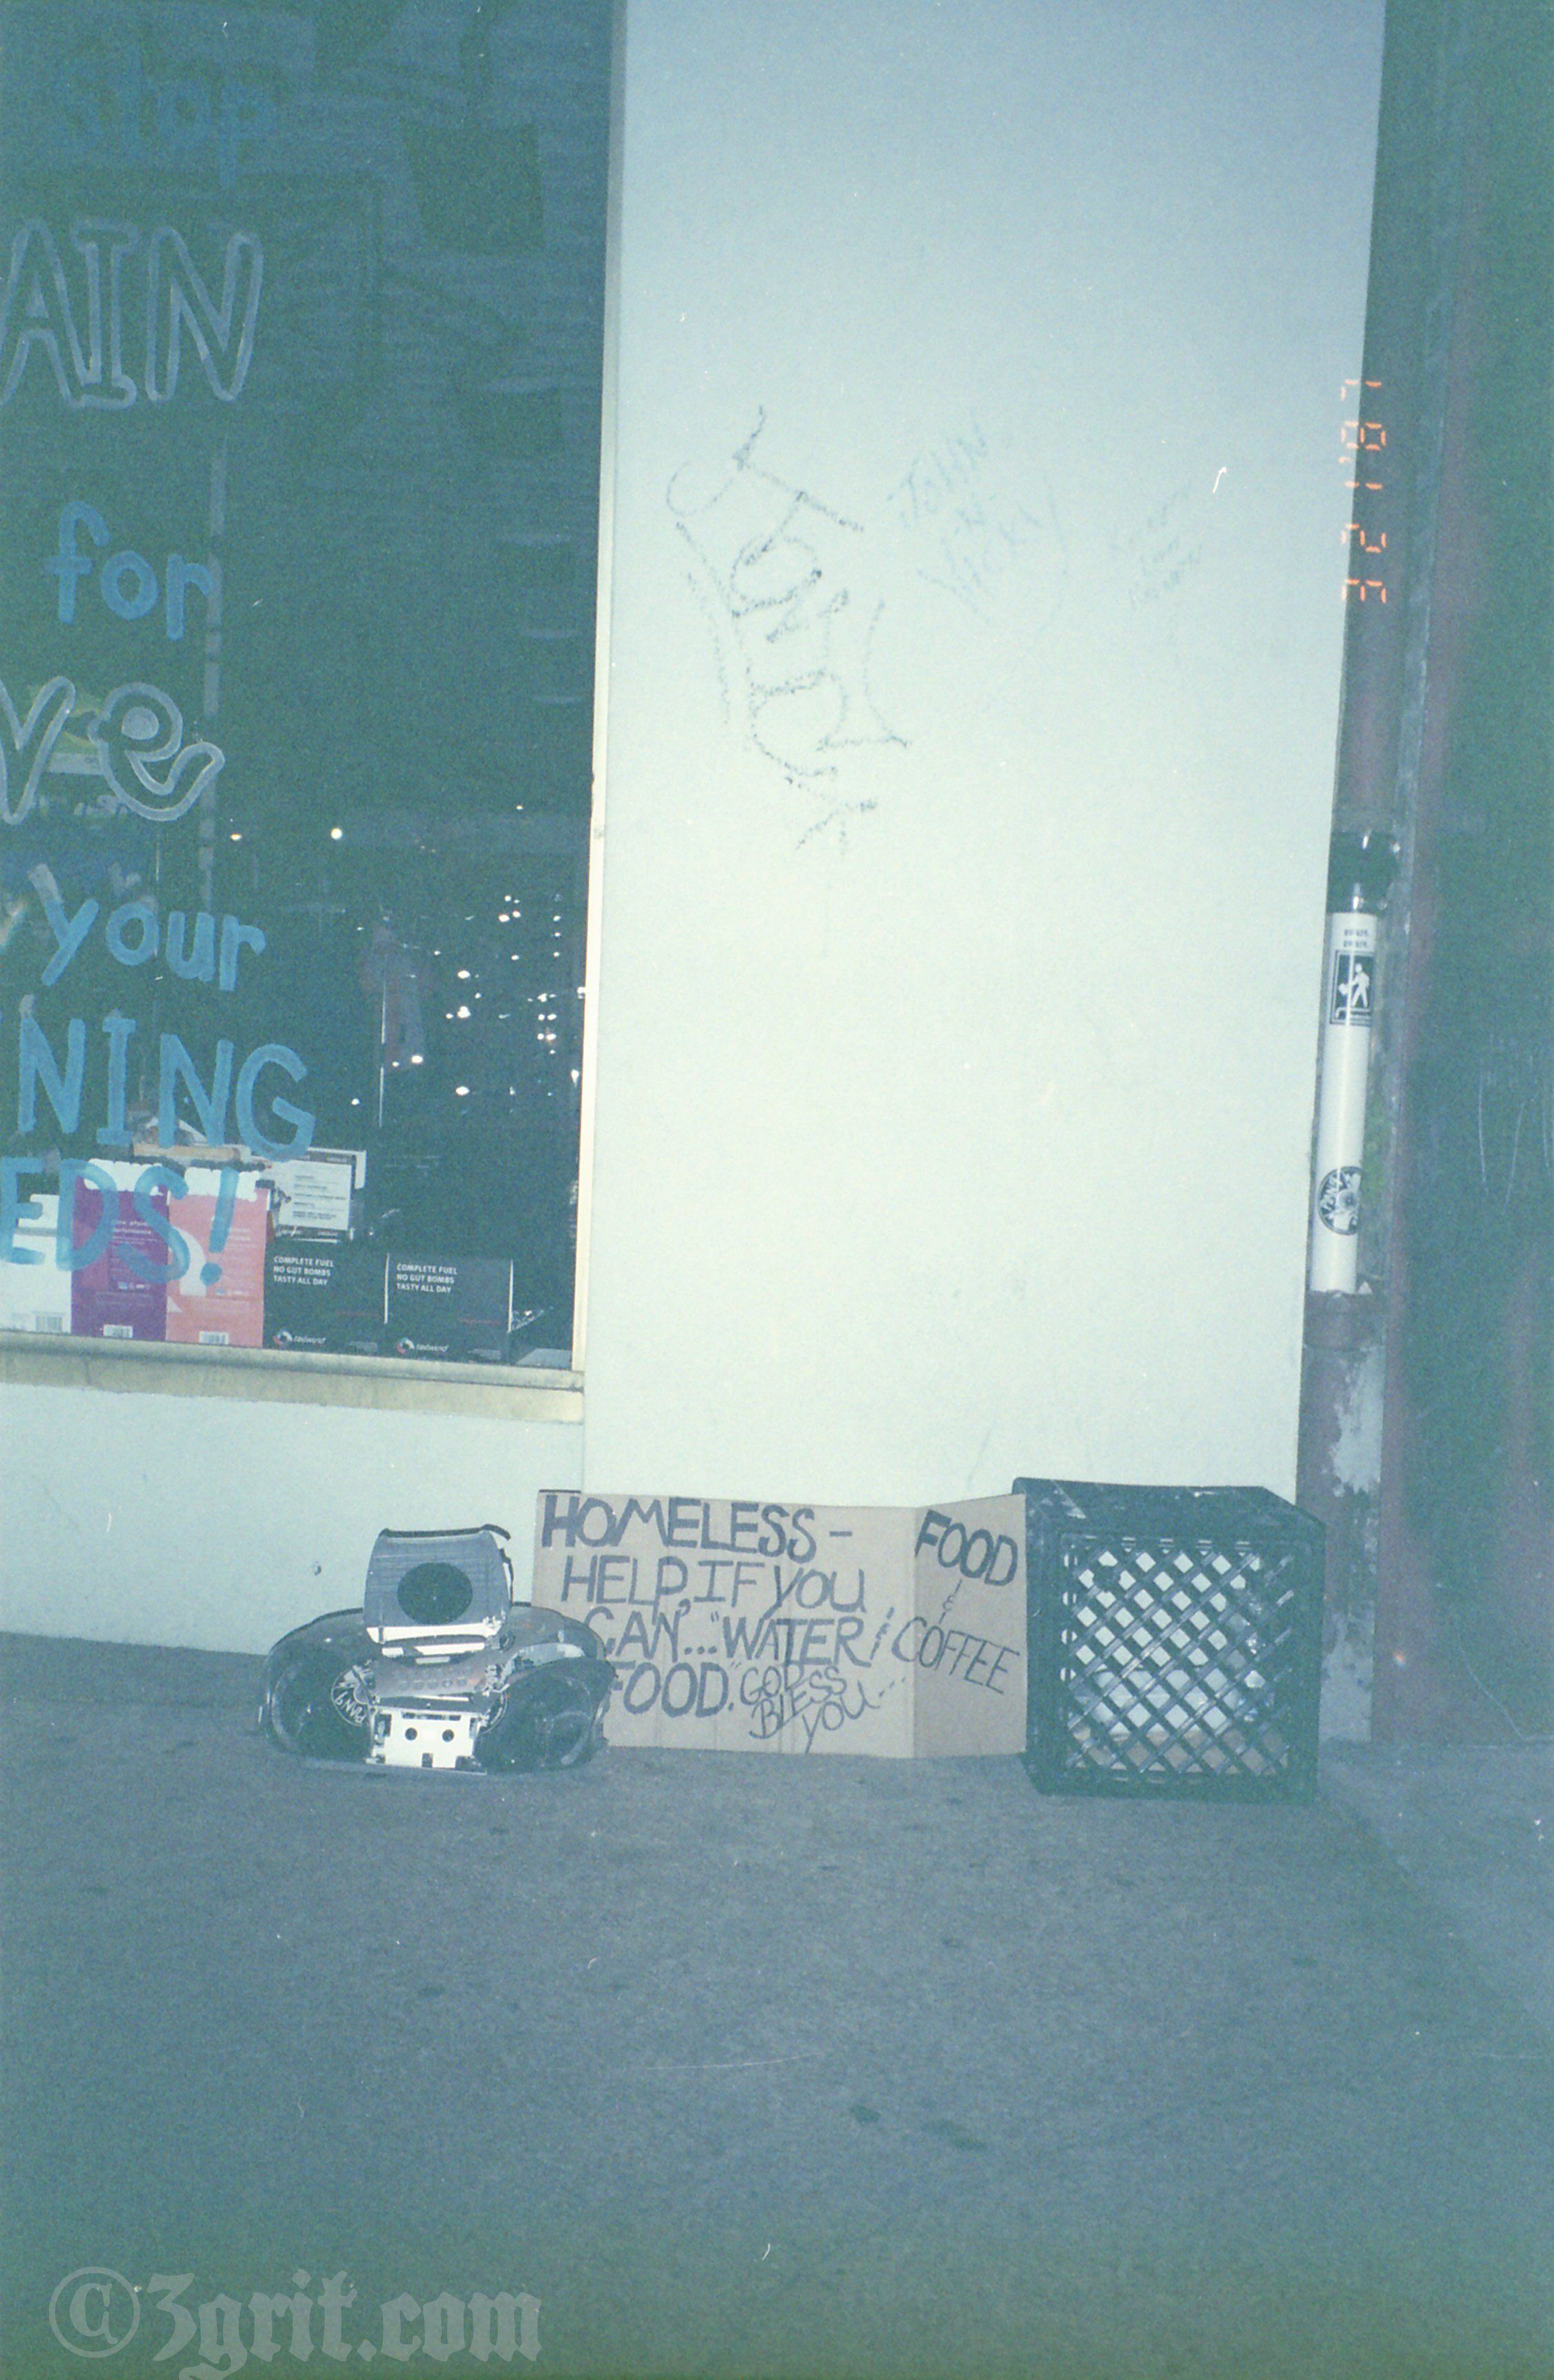 Stop
AIN
for
ve
your
NING
EDS!
COMPLETE FUEL
NO GUT BOMBS
TASTY ALL DAY
tailwind
COMPLETE FUEL
NO GUT BOMBS
TASTY ALL DAY
tailwind
HOMELESS-
HELP, IF YOU
CAN..."WATER &
FOOD." GOD
BLESS
YOU...
FOOD
&
COFFEE
3 21 '87
©3grit.com